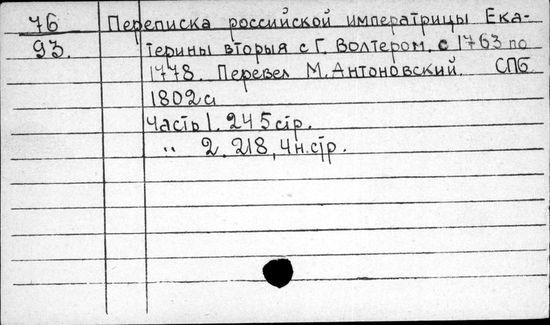 76 Переписка российской императрицы Ека-
93. терины вторыя с Г. Волтером. с 1763 по
1778. Перевел М. Антоновский. СПБ.
1802 г.
Часть 1. 245 стр.
" 2. 218, 4 н. стр.